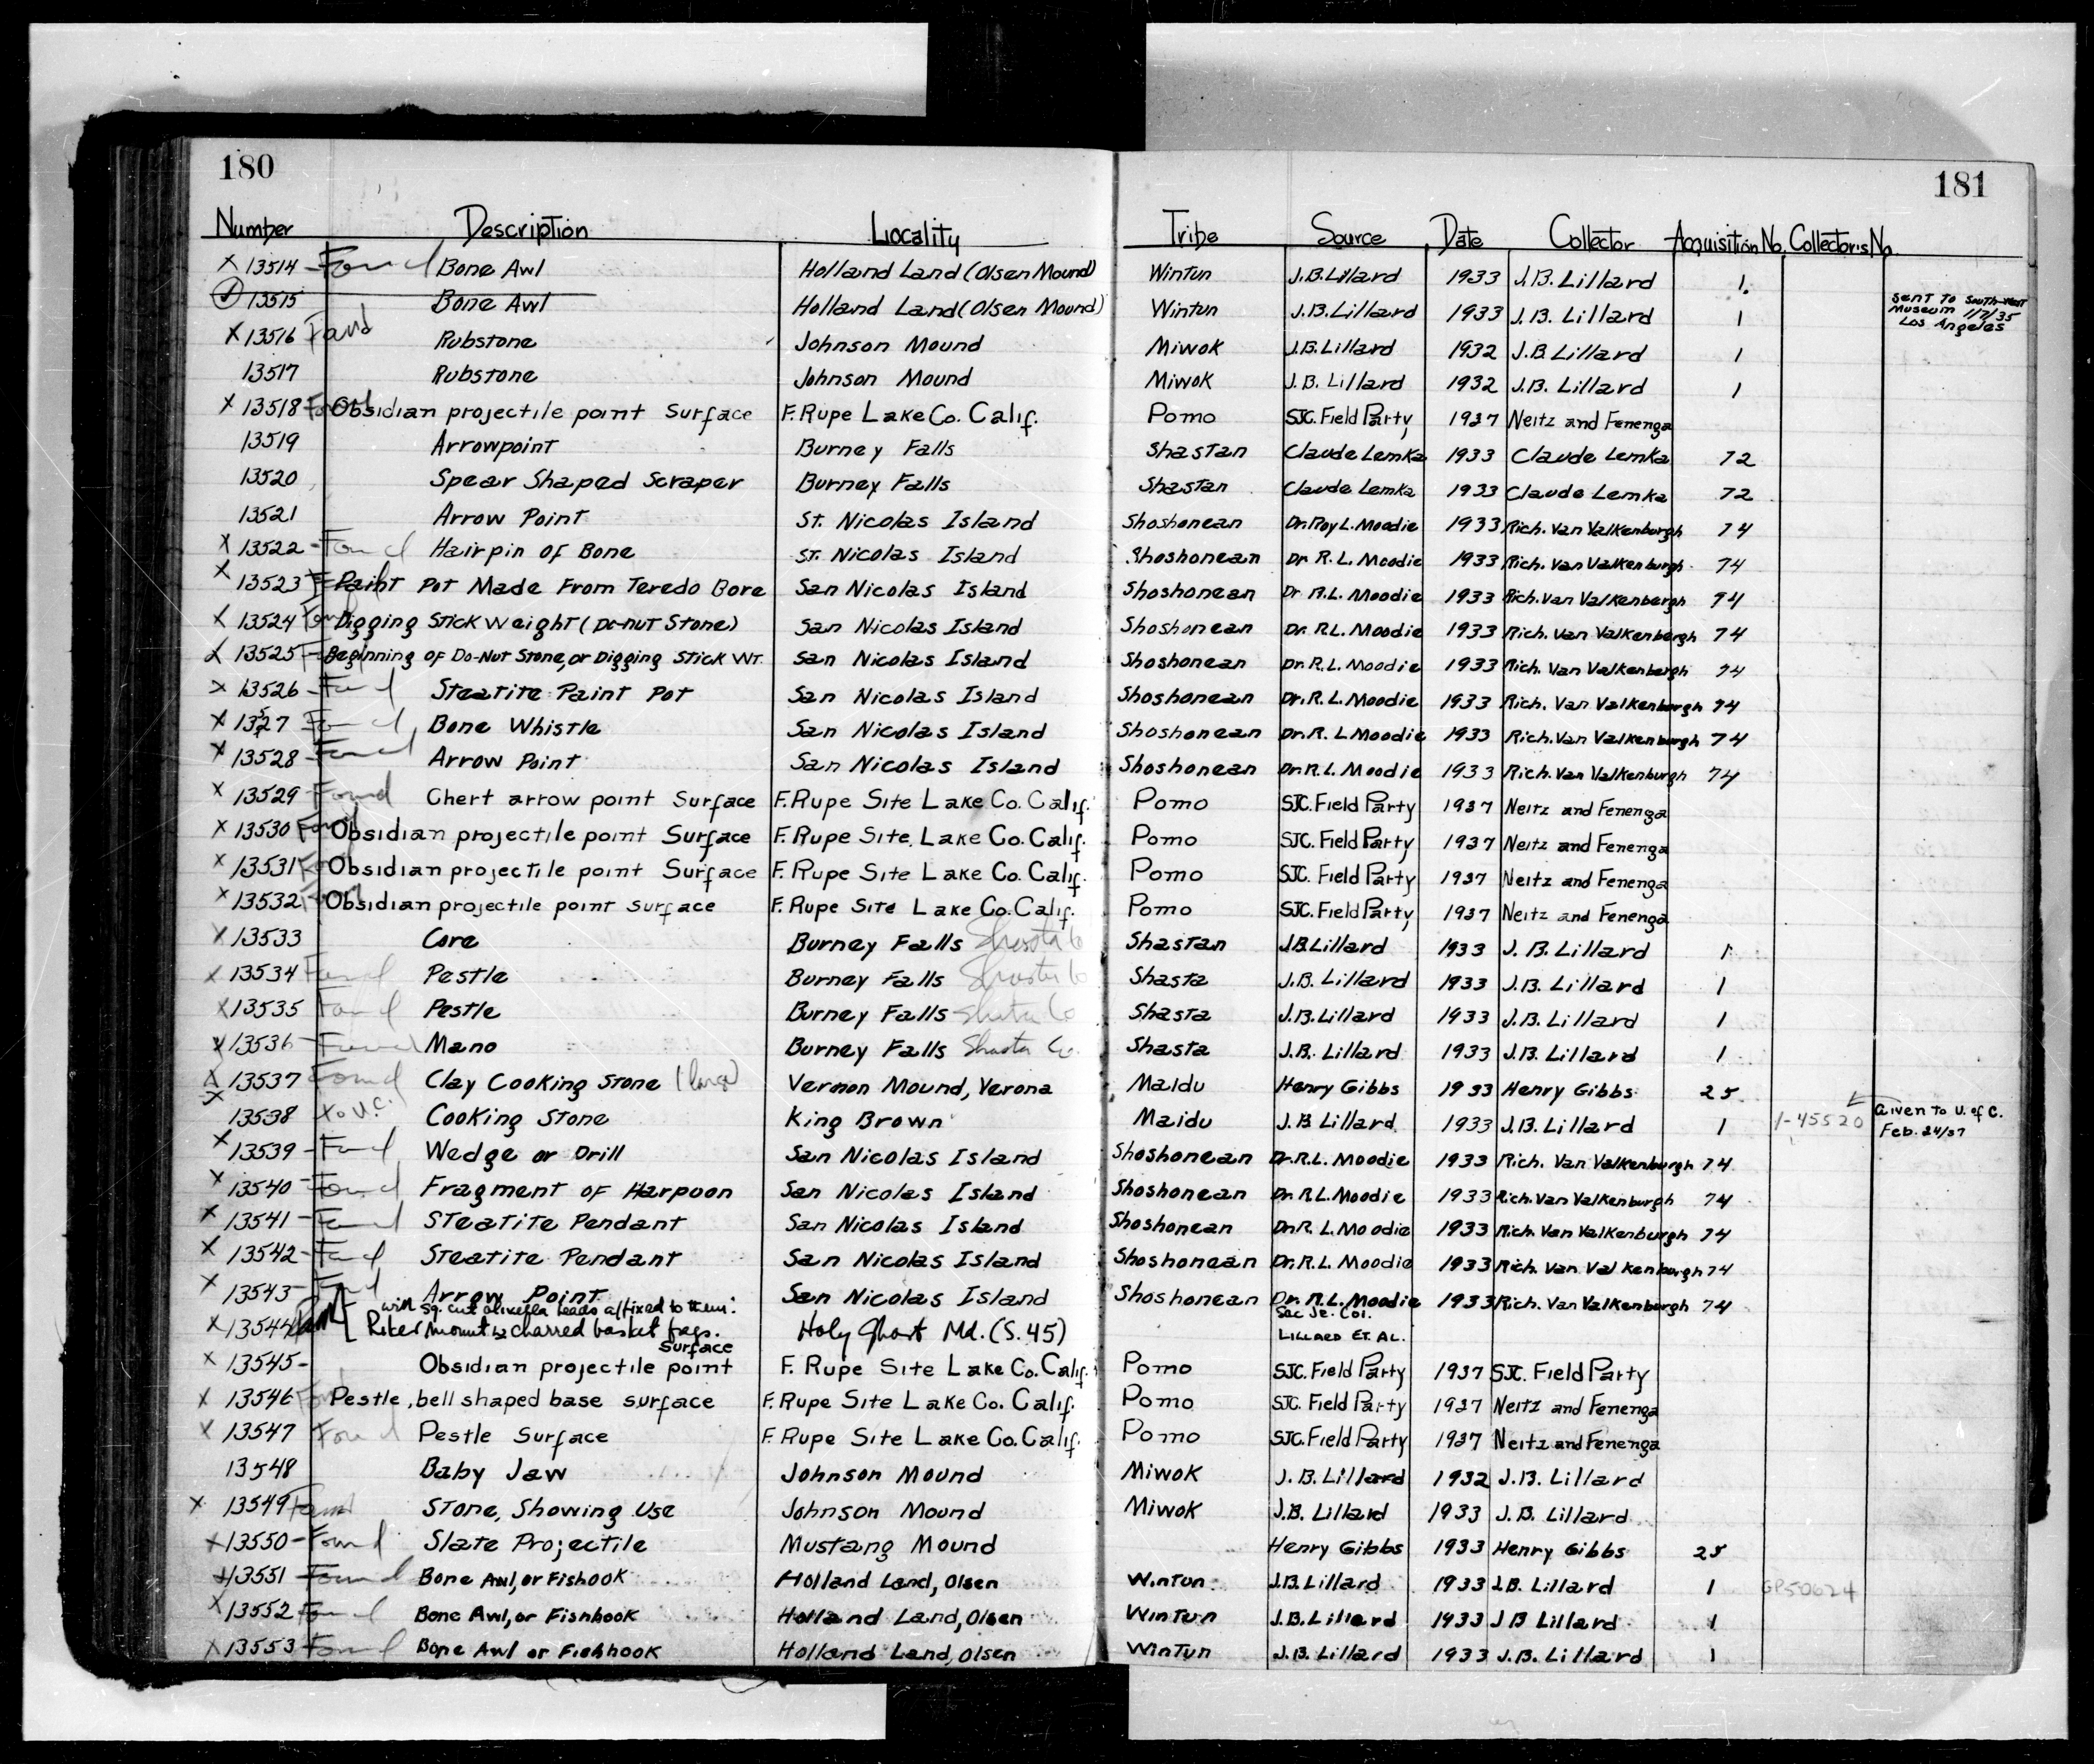 180
181
Number Description Locality Tribe Source Date Collector Acquisition No. Collector's No.
X 13514 - Found Bone Awl Holland Land (Olsen Mound) Wintun J.B. Lillard 1933 J.B. Lillard 1.
✓ 13515 Bone Awl Holland Land (Olsen Mound) Wintun J.B. Lillard 1933 J.B. Lillard 1 Sent to South-West Museum 1/7/35 Los Angeles
X 13516 Found Rubstone Johnson Mound Miwok J.B. Lillard 1932 J.B. Lillard 1
13517 Rubstone Johnson Mound Miwok J.B. Lillard 1932 J.B. Lillard 1
X 13518 Found Obsidian projectile point Surface F. Rupe Lake Co. Calif. Pomo SJC. Field Party 1937 Neitz and Fenenga
13519 Arrowpoint Burney Falls Shastan Claude Lemka 1933 Claude Lemka 72
13520 Spear Shaped Scraper Burney Falls Shastan Claude Lemka 1933 Claude Lemka 72
13521 Arrow Point St. Nicolas Island Shoshonean Dr. Roy L. Moodie 1933 Rich. Van Valkenburgh 74
X 13522 - Found Hairpin of Bone St. Nicolas Island Shoshonean Dr R.L. Moodie 1933 Rich. Van Valkenburgh 74
X 13523 Paint Pot Made From Teredo Bore San Nicolas Island Shoshonean Dr R.L. Moodie 1933 Rich. Van Valkenbergh 74
X 13524 Found Digging Stick weight (Do-nut Stone) San Nicolas Island Shoshonean Dr. R.L. Moodie 1933 Rich. Van Valkenbergh 74
X 13525 Beginning of Do-Nut Stone, or Digging Stick WT. San Nicolas Island Shoshonean Dr. R.L. Moodie 1933 Rich. Van Valkenbergh 74
X 13526 - Found Steatite Paint Pot San Nicolas Island Shoshonean Dr. R.L. Moodie 1933 Rich. Van Valkenburgh 74
X 13527 Found Bone Whistle San Nicolas Island Shoshonean Dr. R. L Moodie 1933 Rich. Van Valkenburgh 74
X 13528 - Found Arrow Point San Nicolas Island Shoshonean Dr. R.L. Moodie 1933 Rich. Van Valkenburgh 74
X 13529 Found Chert arrow point Surface F. Rupe Site Lake Co. Calif. Pomo SJC. Field Party 1937 Neitz and Fenenga
X 13530 Found Obsidian projectile point Surface F. Rupe Site Lake Co. Calif. Pomo SJC. Field Party 1937 Neitz and Fenenga
X 13531 Found Obsidian projectile point Surface F. Rupe Site Lake Co. Calif. Pomo SJC. Field Party 1937 Neitz and Fenenga
X 13532 Found Obsidian projectile point surface F. Rupe Site Lake Co. Calif. Pomo SJC. Field Party 1937 Neitz and Fenenga
X 13533 Core Burney Falls Shasta Co Shastan J.B. Lillard 1933 J. B. Lillard 1
X 13534 Found Pestle Burney Falls Shasta Co Shasta J.B. Lillard 1933 J.B. Lillard 1
X 13535 Found Pestle Burney Falls Shasta Co Shasta J.B. Lillard 1933 J.B. Lillard 1
X 13536 - Found Mano Burney Falls Shasta Co. Shasta J.B. Lillard 1933 J.B. Lillard 1
X 13537 Found Clay Cooking Stone (large) Vernon Mound, Verona Maidu Henry Gibbs 1933 Henry Gibbs 25
X 13538 to U.C. Cooking Stone King Brown Maidu J.B. Lillard 1933 J.B. Lillard 1 1-45520 Given to U. of C. Feb. 24/37
X 13539 - Found Wedge or Drill San Nicolas Island Shoshonean Dr. R.L. Moodie 1933 Rich. Van Valkenburgh 74
X 13540 Found Fragment of Harpoon San Nicolas Island Shoshonean Dr. R.L. Moodie 1933 Rich. Van Valkenburgh 74
X 13541 - Found Steatite Pendant San Nicolas Island Shoshonean Dr. R. L. Moodie 1933 Rich. Van Valkenburgh 74
X 13542 - Found Steatite Pendant San Nicolas Island Shoshonean Dr. R.L. Moodie 1933 Rich. Van Valkenburgh 74
X 13543 - Found Arrow Point San Nicolas Island Shoshonean Dr. R.L. Moodie 1933 Rich. Van Valkenburgh 74
with sq. cut olivella beads affixed to them. Sac Jr. Col.
X 13544 Riker Mount charred basket frags. Holy Ghost Md. (S. 45) LILLARD ET. AL.
X 13545 - Obsidian projectile point Surface F. Rupe Site Lake Co. Calif. Pomo SJC. Field Party 1937 SJC. Field Party
X 13546 Found Pestle, bell shaped base surface F. Rupe Site Lake Co. Calif. Pomo SJC. Field Party 1937 Neitz and Fenenga
X 13547 Found Pestle Surface F. Rupe Site Lake Co. Calif. Pomo SJC. Field Party 1937 Neitz and Fenenga
13548 Baby Jaw Johnson Mound Miwok J.B. Lillard 1932 J.B. Lillard
X 13549 Found Stone, Showing Use Johnson Mound Miwok J.B. Lillard 1933 J.B. Lillard
X 13550 - Found Slate Projectile Mustang Mound Henry Gibbs 1933 Henry Gibbs 25
X 13551 Found Bone Awl, or Fishook Holland Land, Olsen Wintun J.B. Lillard 1933 J.B. Lillard 1 GP50624
X 13552 Found Bone Awl, or Fishhook Holland Land, Olsen Wintun J.B. Lillard 1933 J B Lillard 1
X 13553 Found Bone Awl or Fishhook Holland Land, Olsen Wintun J.B. Lillard 1933 J.B. Lillard 1